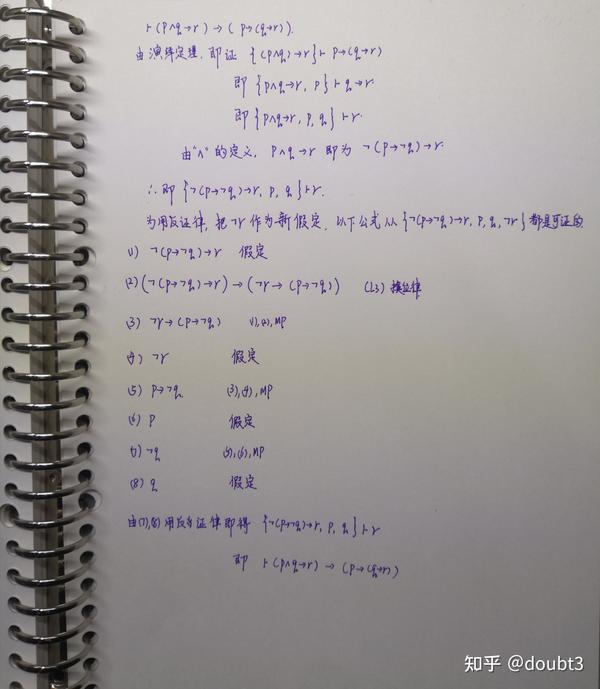 ⊢(p∧q→r)→(p→(q→r)).
由演绎定理，即证 {(p∧q)→r}⊢p→(q→r)
即{p∧q→r, p}⊢q→r.
即{p∧q→r, p, q}⊢r.
由"∧"的定义，p∧q→r 即为 ¬(p→¬q)→r.
∴即{¬(p→¬q)→r, p, q}⊢r.
为用反证律，把¬r作为新假定，以下公式从{¬(p→¬q)→r, p, q, ¬r}都是可证的
(1) ¬(p→¬q)→r 假定
(2) (¬(p→¬q)→r)→(¬r→(p→¬q)) (L3) 换位律
(3) ¬r→(p→¬q) (1),(2),MP
(4) ¬r 假定
(5) p→¬q (3),(4),MP
(6) p 假定
(7) ¬q (5),(6),MP
(8) q 假定
由(7),(8)用反证律即得 {¬(p→¬q)→r, p, q}⊢r
即 ⊢(p∧q→r)→(p→(q→r))
知乎 @doubt3